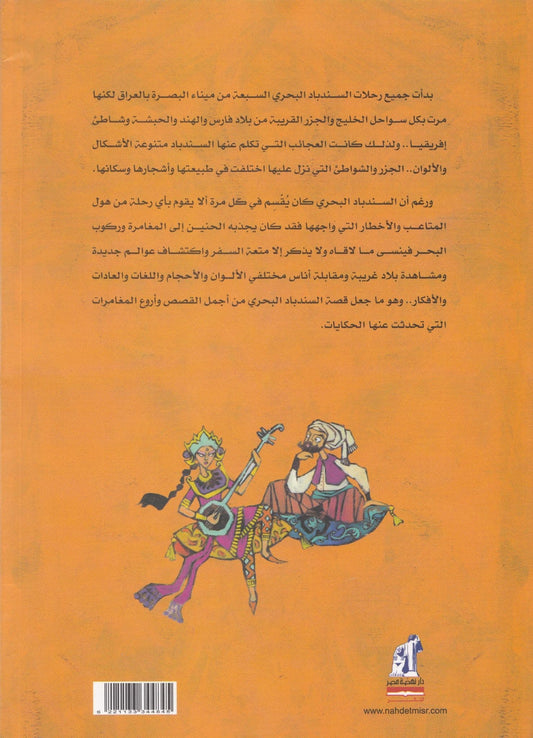 بدأت جميع رحلات السندباد البحري السبعة من ميناء البصرة بالعراق لكنها
مرت بكل سواحل الخليج والجزر القريبة من بلاد فارس والهند والحبشة وشاطئ
إفريقيا.. ولذلك كانت العجائب التي تكلم عنها السندباد متنوعة الأشكال
والألوان.. الجزر والشواطئ التي نزل عليها اختلفت في طبيعتها وأشجارها وسكانها.
ورغم أن السندباد البحري كان يُقْسِم في كل مرة ألا يقوم بأي رحلة من هول
المتاعب والأخطار التي واجهها فقد كان يجذبه الحنين إلى المغامرة وركوب
البحر فينسى ما لاقاه ولا يذكر إلا متعة السفر واكتشاف عوالم جديدة
ومشاهدة بلاد غريبة ومقابلة أناس مختلفي الألوان والأحجام واللغات والعادات
والأفكار.. وهو ما جعل قصة السندباد البحري من أجمل القصص وأروع المغامرات
التي تحدثت عنها الحكايات.
دار نهضة مصر
للنشر
www.nahdetmisr.com
6 221133 344645